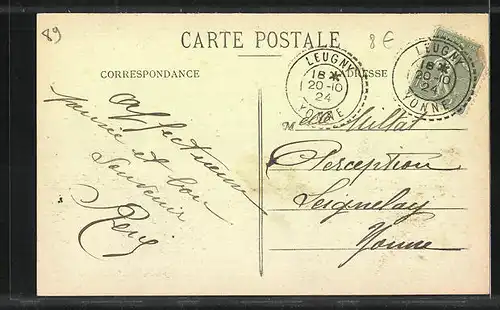 89
8€
CARTE POSTALE
CORRESPONDANCE
ADRESSE
LEUGNY
18 *
20-10
24
YONNE
LEUGNY
18 *
20-10
24
YONNE
M elle Millat
Perception
Seignelay
Yonne
Affectueuse
pensée et bon
Souvenir